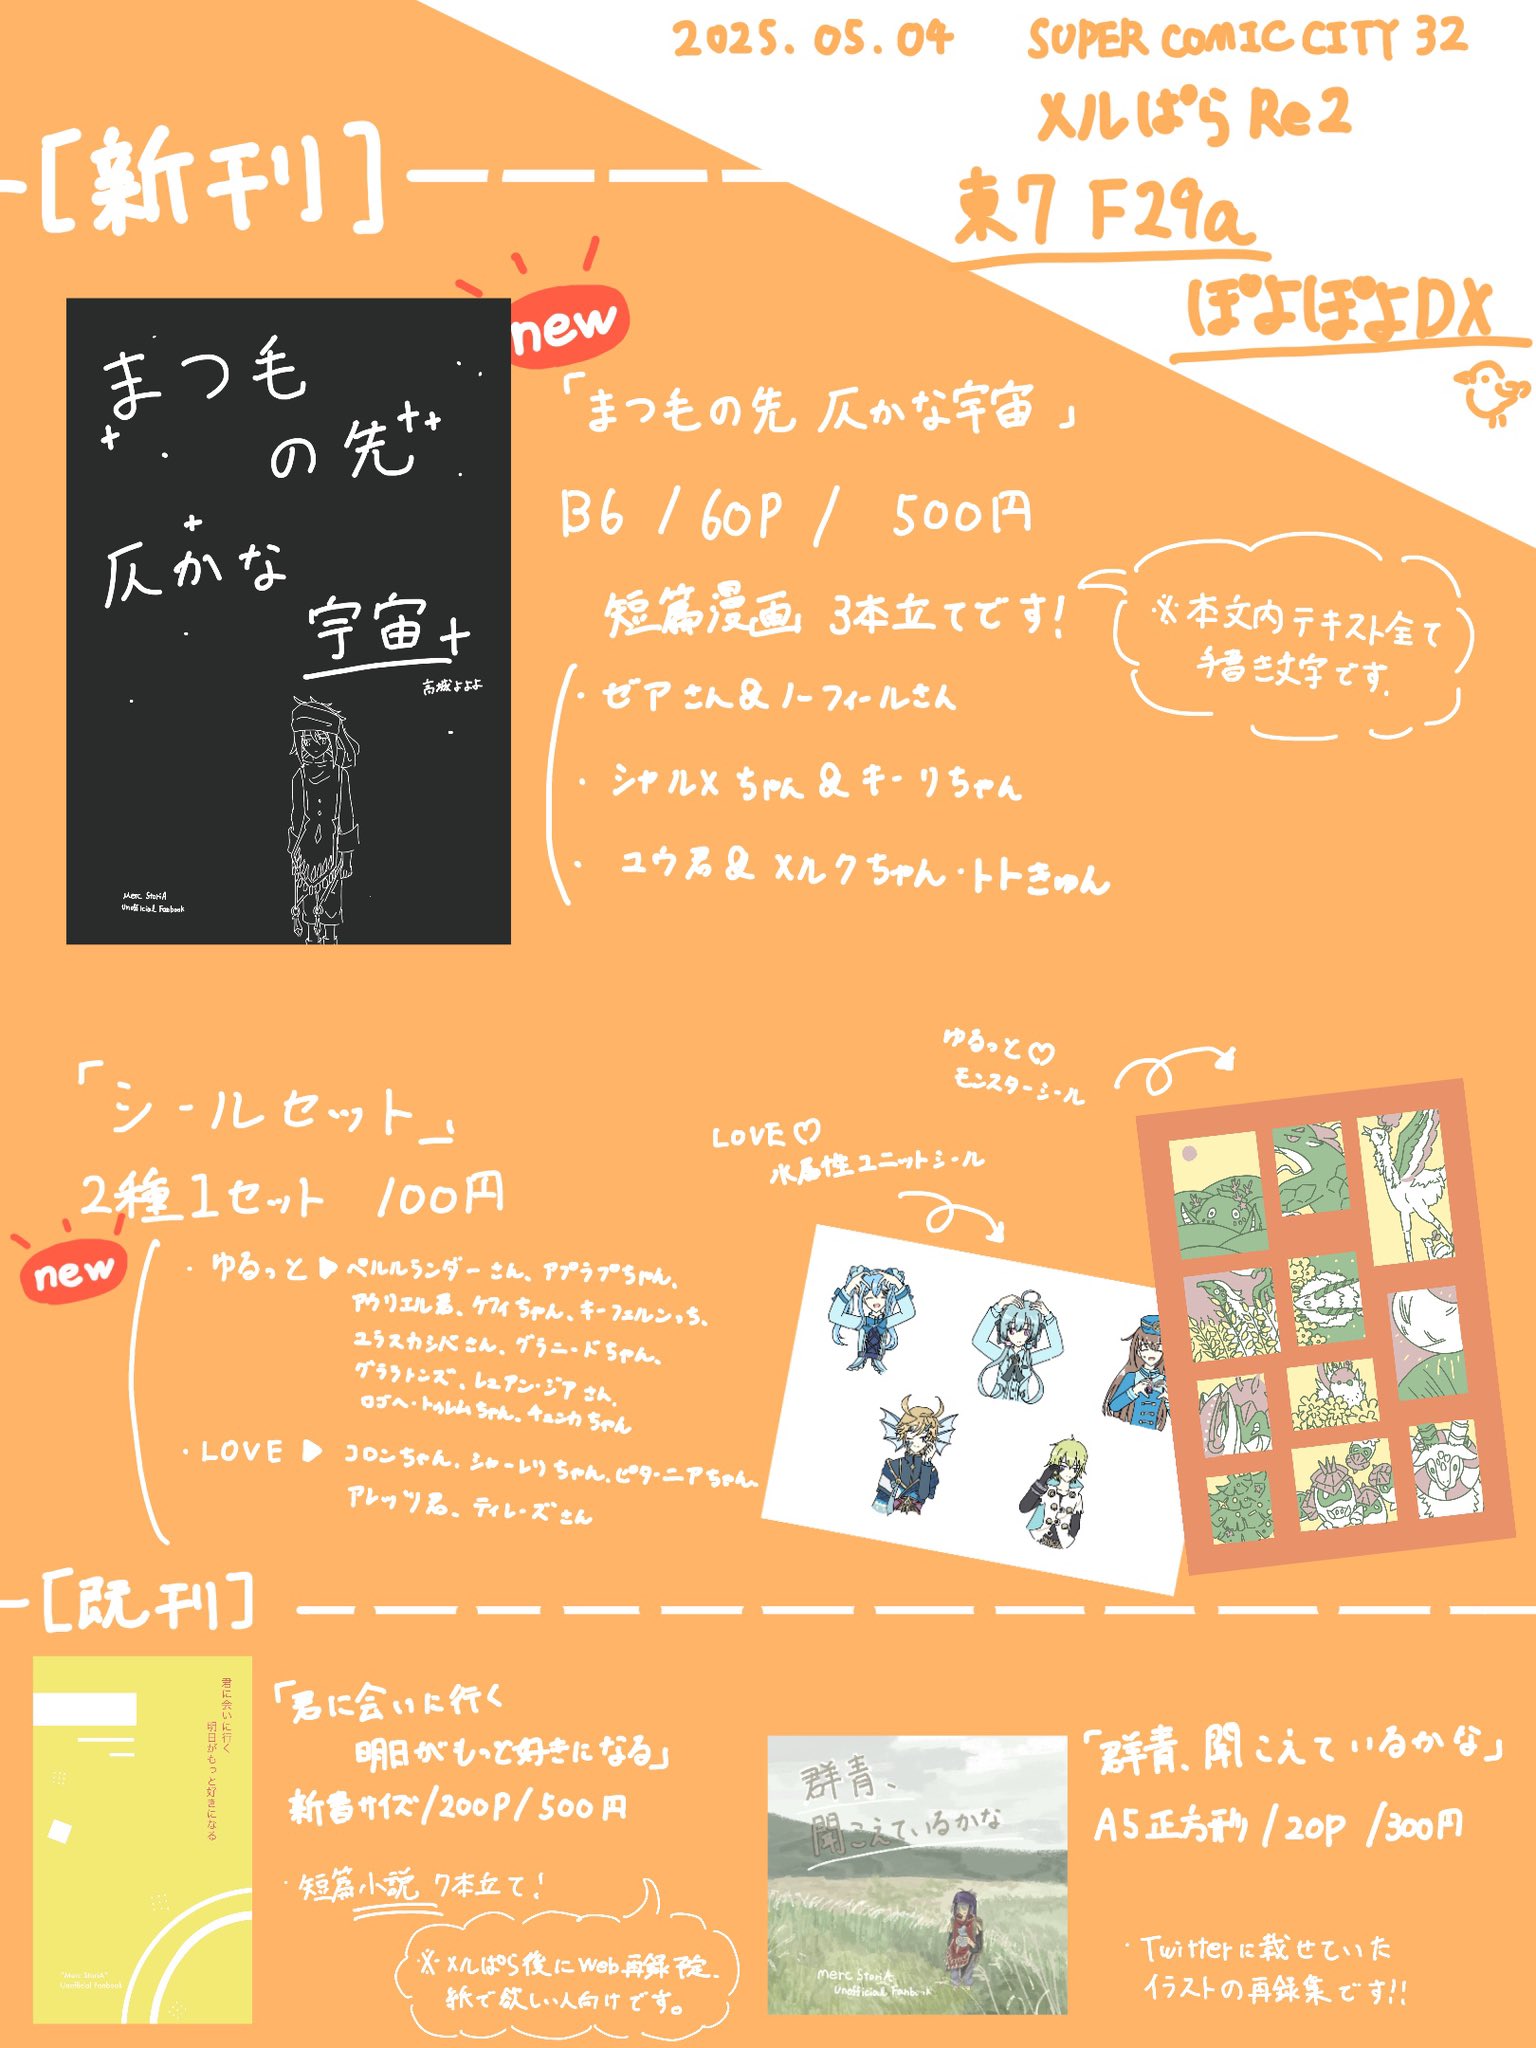 2025.05.04 SUPER COMIC CITY 32
メルぱらRe2
東7 F29a
ぽよぽよDX
[新刊]
new
まつ毛
の先
仄かな
宇宙
高城よよよ
Merc StoriA
Unofficial Fanbook
「まつ毛の先 仄かな宇宙」
B6 / 60P / 500円
短篇漫画 3本立てです!
・ゼアさん&ノーフィールさん
・シャルメちゃん&キーリちゃん
・ユウ君&メルクちゃん・トトきゅん
※本文内テキスト全て
手書き文字です.
「シールセット」
2種1セット 100円
new
・ゆるっと▶ペルルランダーさん、アプラプちゃん、
アウリエル君、ケフィちゃん、キーフェルンっち、
ユラスカシバさん、グラニードちゃん、
グララトンズ、レユアン・ジアさん、
ロゴヘ・トゥレムちゃん、チェンカちゃん
・LOVE▶コロンちゃん、シャーレリちゃん、ピタ・ニアちゃん、
アレッツ君、ティレ・ズさん
ゆるっと♡
モンスターシール
LOVE♡
水属性ユニットシール
[既刊]
君に会いに行く
明日がもっと好きになる
"Merc StoriA"
Unofficial Fanbook
「君に会いに行く
明日がもっと好きになる」
新書サイズ/200P/500円
・短篇小説 7本立て!
※メルぱら後にWeb再録予定、
紙で欲しい人向けです。
群青、
聞こえているかな
Merc StoriA
Unofficial Fanbook
「群青、聞こえているかな」
A5正方形/20P/300円
・Twitterに載せていた
イラストの再録集です!!